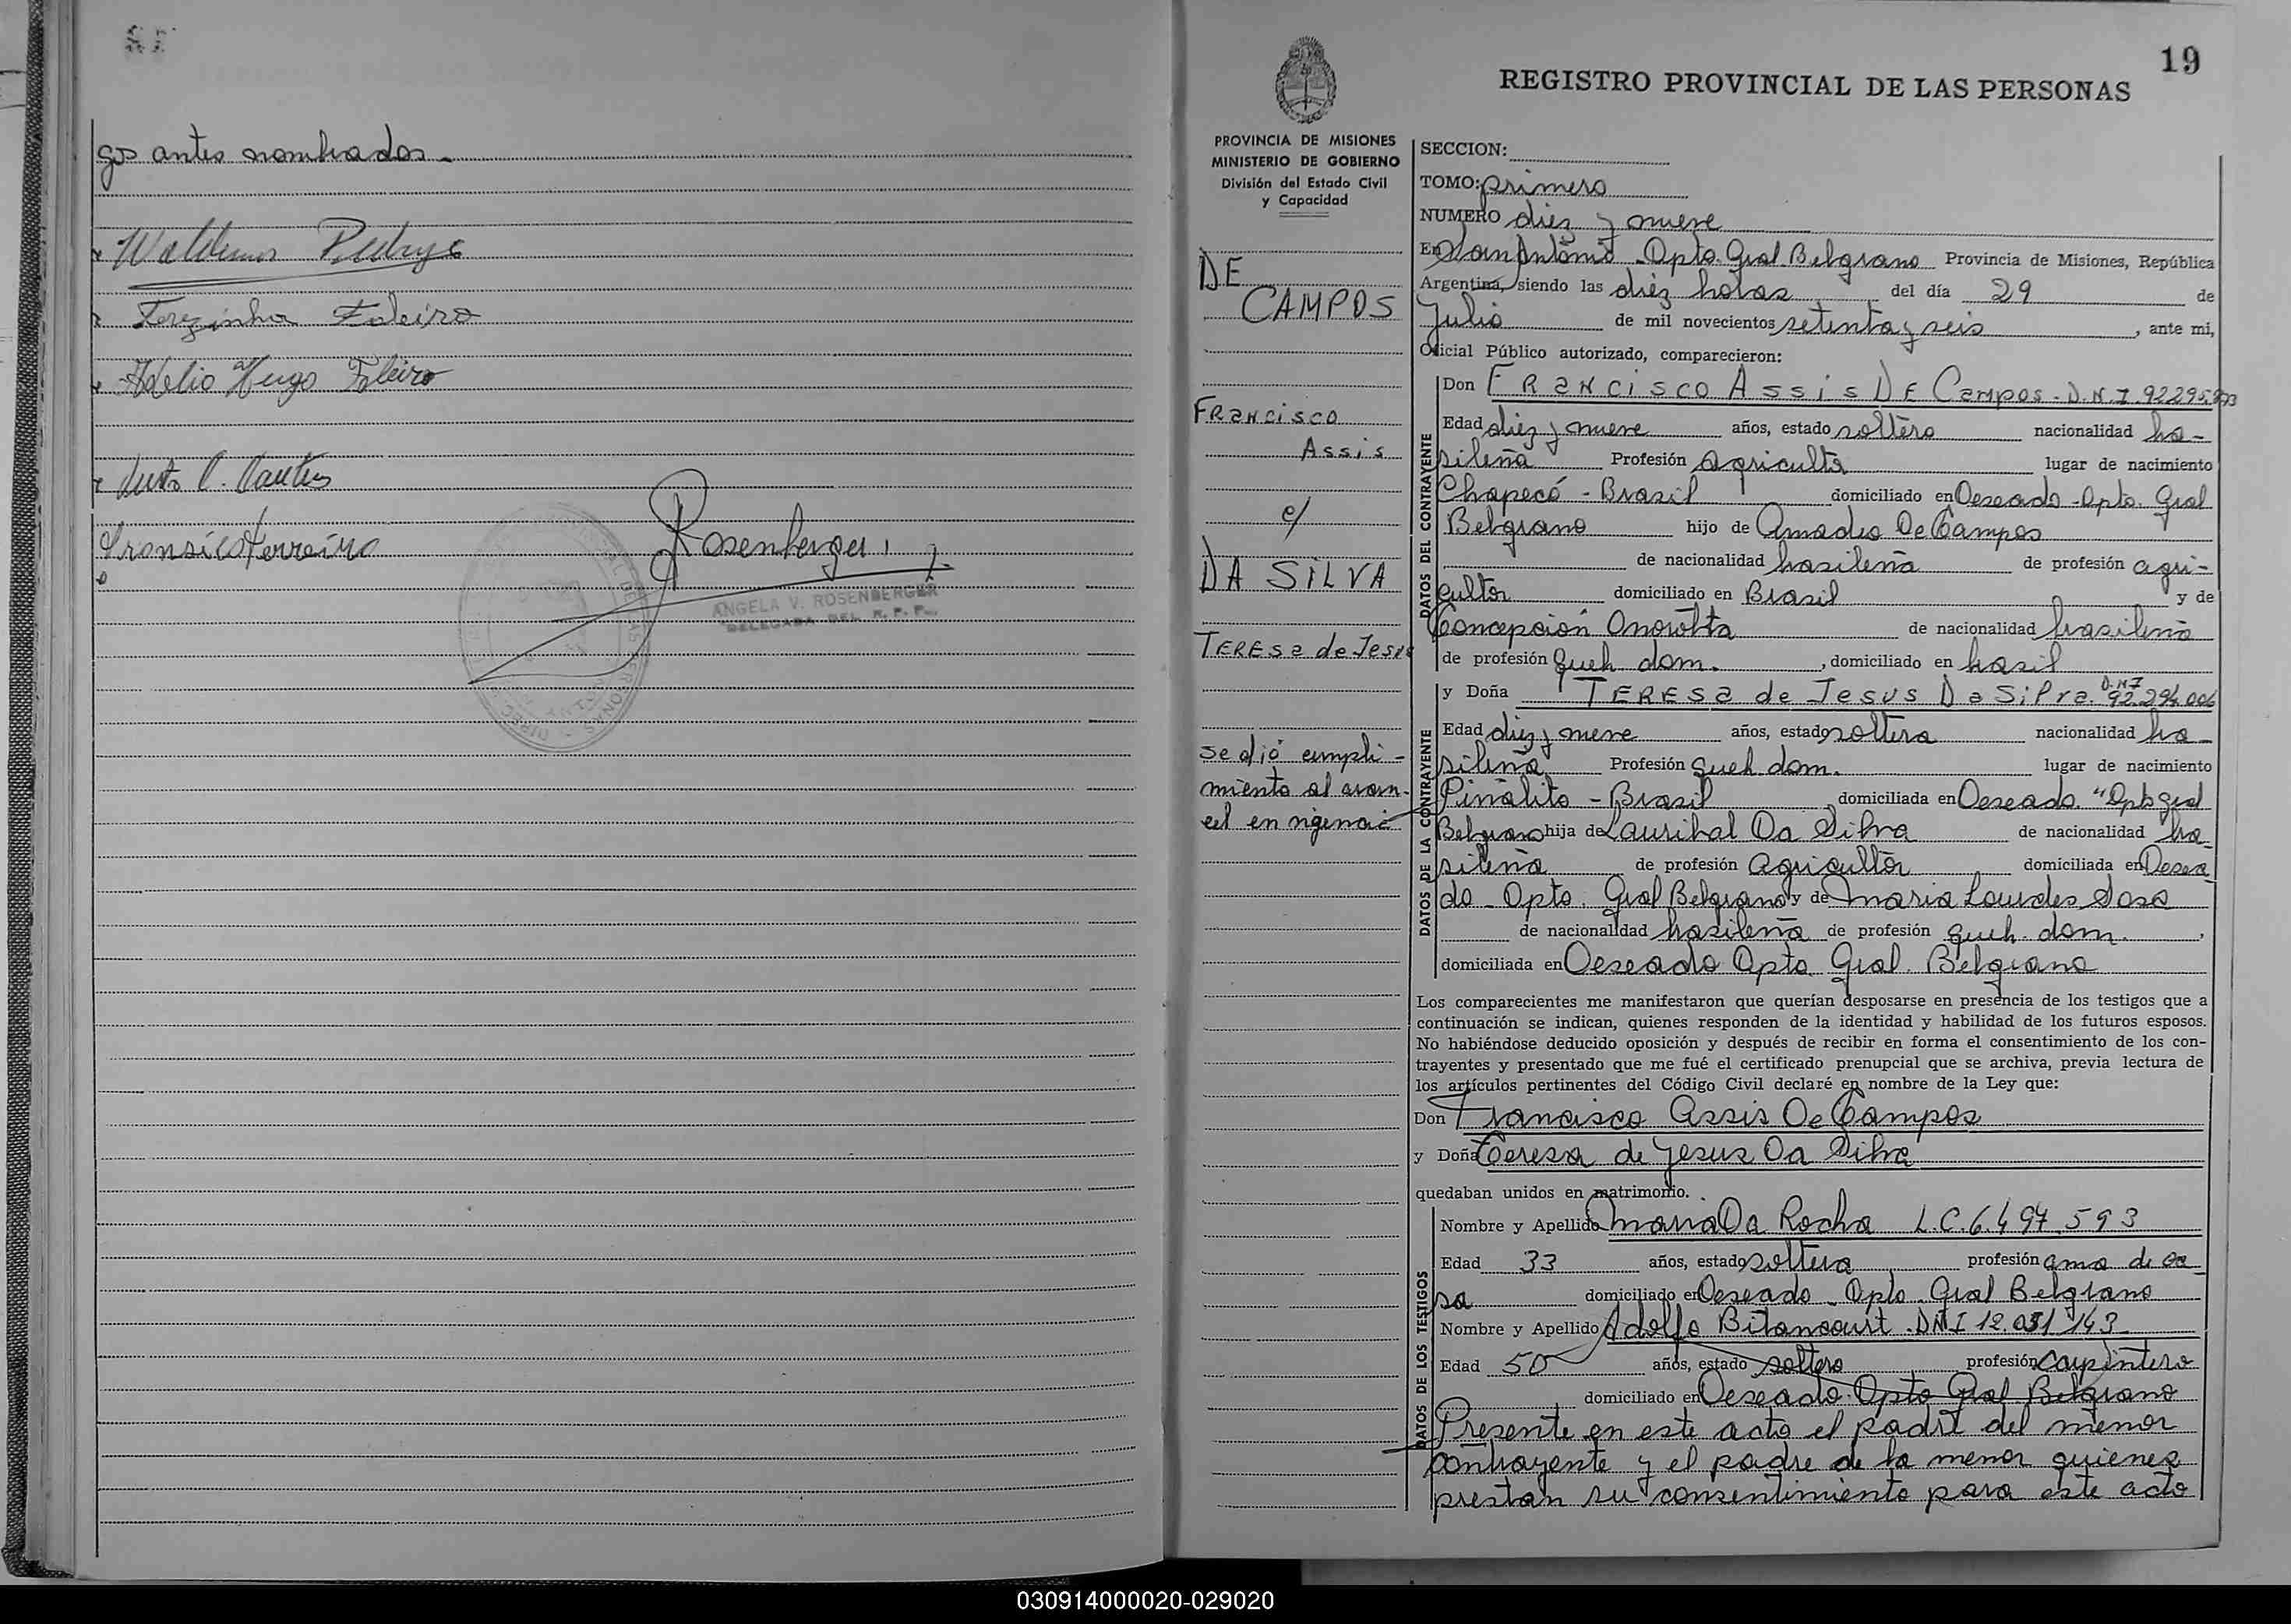 gos antes nombrados.
Terezinha Foleiro
Adelio Hugo Foleiro
Rosenberger
ANGELA V. ROSENBERGER
DELEGADA DEL R. P. P.
19
REGISTRO PROVINCIAL DE LAS PERSONAS
PROVINCIA DE MISIONES
MINISTERIO DE GOBIERNO
División del Estado Civil
y Capacidad
DE
CAMPOS
Francisco
Assis
c/
DA SILVA
TERESa de Jesus
se dió cumpli-
miento al aran-
cel en vigencia
SECCION:
TOMO: primero
NUMERO diez y nueve
En San Antonio - Dpto. Gral. Belgrano Provincia de Misiones, República
Argentina, siendo las diez horas del día 29 de
Julio de mil novecientos setenta y seis, ante mi,
Oficial Público autorizado, comparecieron:
DATOS DEL CONTRAYENTE
Don Francisco Assis De Campos - D.N.I. 92295
Edad diez y nueve años, estado soltero nacionalidad bra-
sileña Profesión Agricultor lugar de nacimiento
Chapecó - Brasil domiciliado en Deseado - Dpto. Gral
Belgrano hijo de Amadeo De Campos
de nacionalidad brasileña de profesión agri-
cultor domiciliado en Brasil y de
Concepción de nacionalidad brasileña
de profesión queh dom. , domiciliado en brasil
y Doña TERESa de Jesus Da Silva. D.N.I 92.294.006
DATOS DE LA CONTRAYENTE
Edad diez y nueve años, estado soltera nacionalidad bra-
sileña Profesión queh. dom. lugar de nacimiento
Piñalito - Brasil domiciliada en Deseado "Dpto gral
Belgrano hija de Lauribal Da Silva de nacionalidad bra-
sileña de profesión agricultor domiciliada en Desea
do - Dpto. Gral Belgrano y de Maria Lourdes Sosa
de nacionalidad brasileña de profesión queh. dom. ,
domiciliada en Deseado Dpto Gral. Belgrano
Los comparecientes me manifestaron que querían desposarse en presencia de los testigos que a
continuación se indican, quienes responden de la identidad y habilidad de los futuros esposos.
No habiéndose deducido oposición y después de recibir en forma el consentimiento de los con-
trayentes y presentado que me fué el certificado prenupcial que se archiva, previa lectura de
los artículos pertinentes del Código Civil declaré en nombre de la Ley que:
Don Francisco Assis De Campos
y Doña Teresa de Jesus Da Silva
quedaban unidos en matrimonio.
DATOS DE LOS TESTIGOS
Nombre y Apellido Maria Da Rocha L.C. 6.497.593
Edad 33 años, estado soltera profesión ama de ca-
sa domiciliado en Deseado - Dpto - Gral Belgrano
Nombre y Apellido Adolfo Bitancourt. DNI 12.031.143
Edad 50 años, estado soltero profesión carpintero
domiciliado en Deseado. Dpto Gral Belgrano
Presente en este acto el padre del menor
contrayente y el padre de la menor quienes
prestan su consentimiento para este acto
030914000020-029020